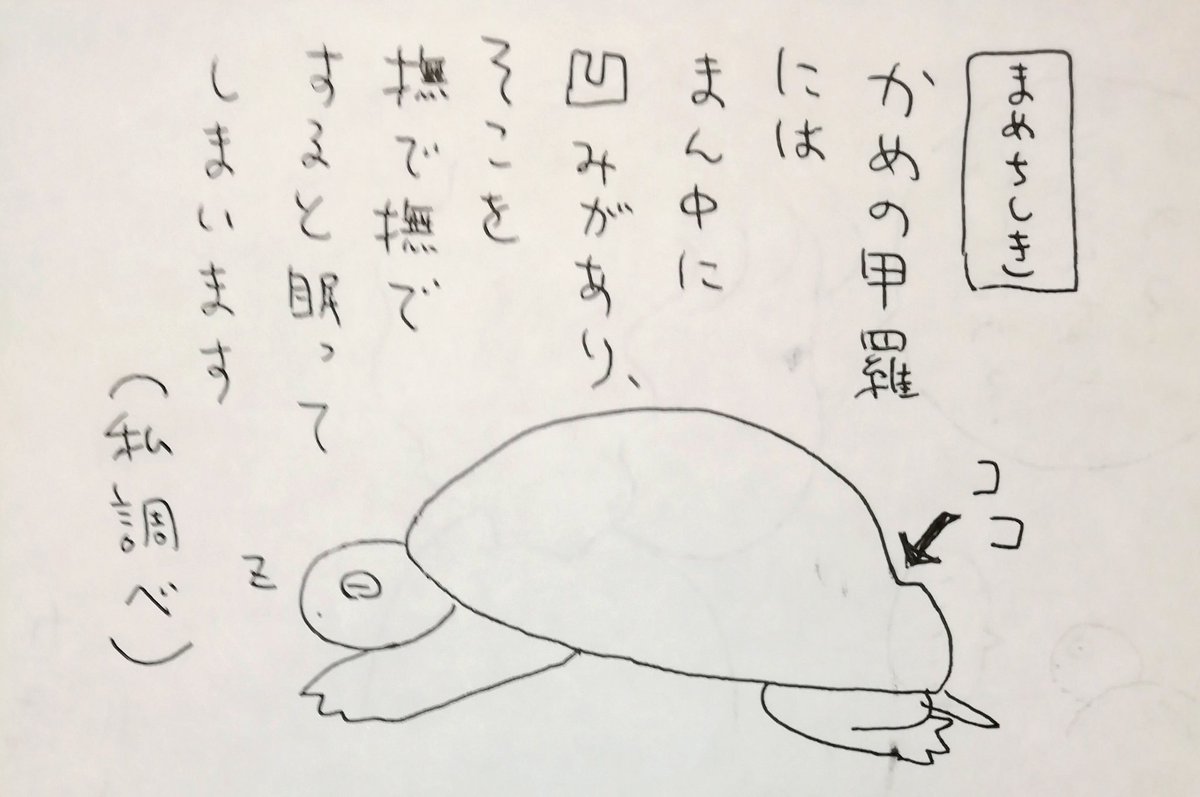 まめちしき
かめの甲羅
には
まん中に
凹みがあり、
そこを
撫で撫で
すると眠って
しまいます
(私調べ)
ココ
z